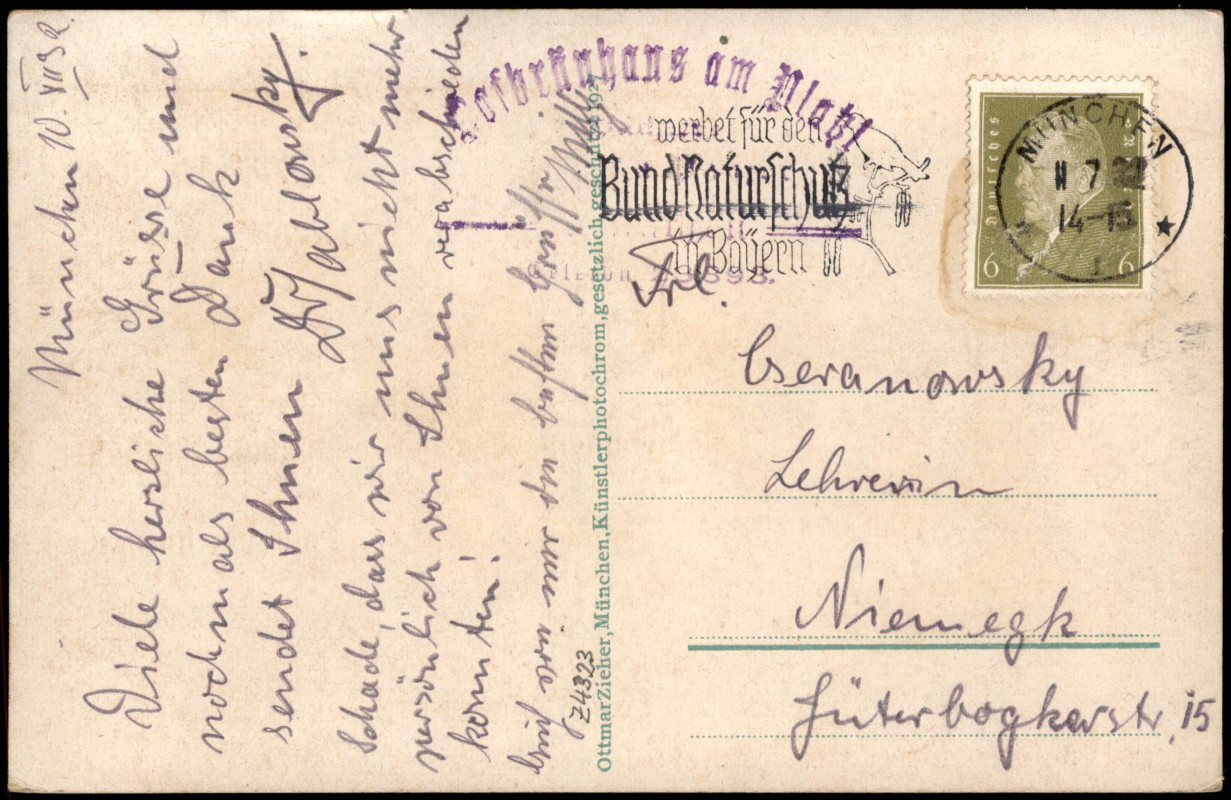 München 10. VII 32.
Viele herzliche Grüsse und
nochmals besten Dank
sendet Ihnen
Schade, dass wir uns nicht mehr
persönlich von Ihnen verabschieden
konnten!
Hofbräuhaus am Platzl
werbet für den
Bund Naturschutz
in Bayern
MÜNCHEN
14-15
Deutsches
6 6
Frl.
Cseranowsky
Lehrerin
Niemegk
Jüterbogkerstr. 15
Ottmar Zieher, München, Künstlerphotochrom, gesetzlich geschützt 1927
Z4323